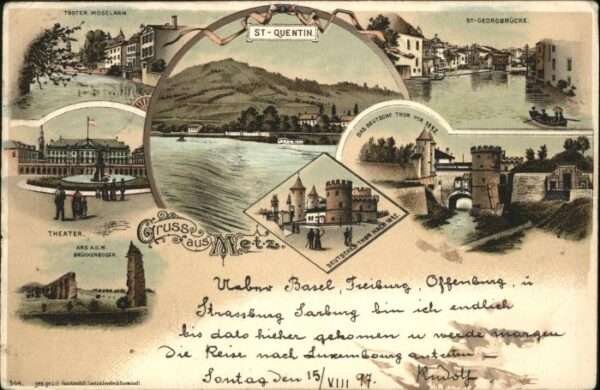 TOOTER MOSELARM.
ST-QUENTIN.
ST-GEORGBRÜCKE.
DAS DEUTSCHE THOR VOR 1892.
THEATER.
Gruss aus Metz.
DEUTSCHES THOR NACH 1892.
ARS A.D.M. BRÜCKENBOGEN.
Ueber Basel, Freiburg, Offenburg, u
Strassburg Sarburg bin ich endlich
bis dato hieher gekomen u werde morgen
Die Reise nach Luxemburg
Sontag den 15/VIII 97. Rudolf